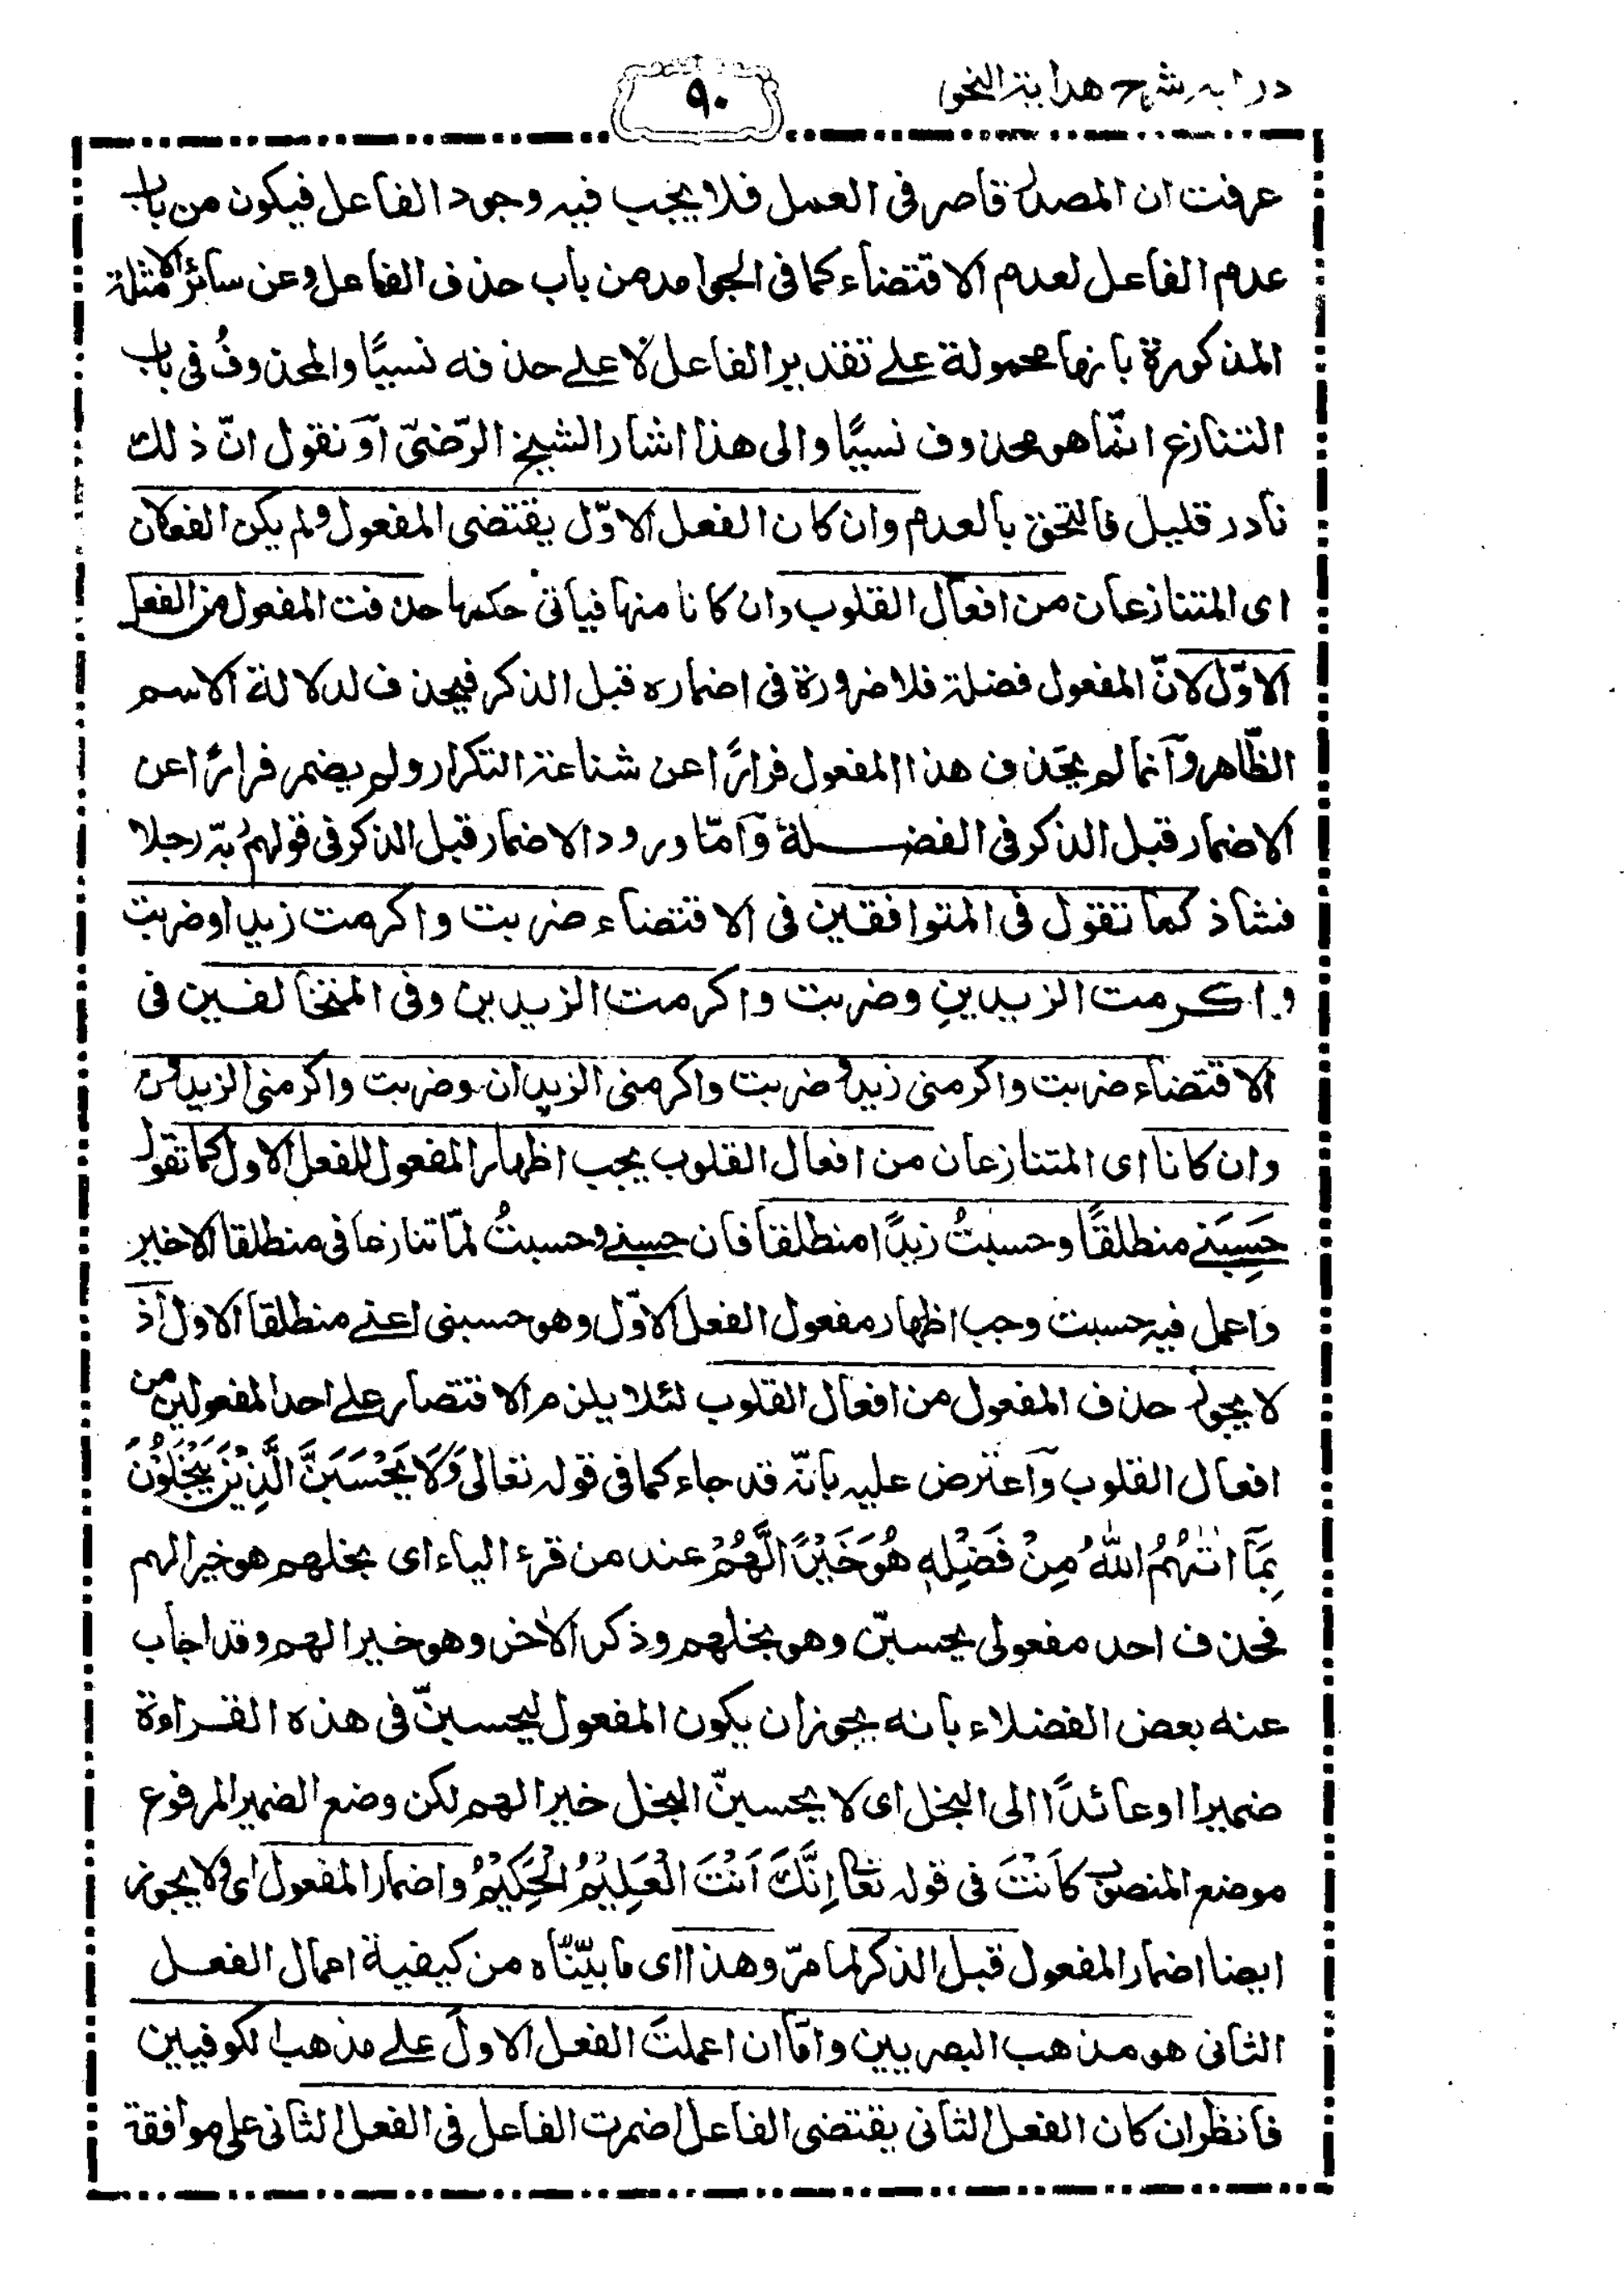 درايه شرح هداية النحو
٩٠
عرفت ان المصدر قاصر فى العمل فلا يجب فيه وجود الفاعل فيكون من باب
عدم الفاعل لعدم الاقتضاء كما فى الجوامد من باب حذف الفاعل وعن سائر الامثلة
المذكورة بانها محمولة على تقدير الفاعل لا على حذفه نسيًا والمحذوفُ فى باب
التنازع انّما هو محذوف نسيًا والى هذا اشار الشيخ الرّضىّ اَو نقول انّ ذلك
نادر قليل فالتحق بالعدم وان كان الفعل الاوّل يقتضى المفعول ولم يكن الفعلان
اى المتنازعان من افعال القلوب وان كانا منها فياتى حكمها حذفت المفعول من الفعل
الاوّل لانّ المفعول فضلة فلا ضرورة فى اضماره قبل الذكر فيحذف لدلالة الاسم
الظّاهر وَانما لم يحذف هذا المفعول فرارًا عن شناعة التكرار ولم يضمر فرارًا عن
الاضمار قبل الذكر فى الفضلة وَامّا ورود الاضمار قبل الذكر فى قولهم ربّه رجلا
فشاذ كما تقول فى المتوافقين فى الاقتضاء ضربت واكرمت زيدا وضربت
واكرمت الزيدينِ وضربت واكرمت الزيدين وفى المتخالفين فى
الاقتضاء ضربت واكرمنى زيد وضربت واكرمنى الزيدان وضربت واكرمنى الزيدون
وان كانا اى المتنازعان من افعال القلوب يجب اظهار المفعول للفعل الاول كما تقول
حَسِبَنِى منطلقًا وحسبتُ زيدًا منطلقا فان حسبنى وحسبتُ لمّا تنازعا فى منطلقا الاخير
واعمل فيه حسبت وجب اظهار مفعول الفعل الاوّل وهو حسبنى اعنى منطلقا الاول اذ
لا يجوز حذف المفعول من افعال القلوب لئلا يلزم الاقتصار على احد المفعولين من
افعال القلوب وَاعترض عليه بانّه قد جاء كما فى قوله تعالى وَلَا يَحْسَبَنَّ الَّذِيْنَ يَبْخَلُوْنَ
بِمَآ اٰتٰهُمُ اللّٰهُ مِنْ فَضْلِهٖ هُوَ خَيْرًا لَّهُمْ عند من قرئ الياء اى بخلهم هو خيرا لهم
فحذف احد مفعولى يحسبنّ وهو بخلهم وذكر الاٰخر وهو خيرا لهم وقد اجاب
عنه بعض الفضلاء بانه يجوز ان يكون المفعول ليحسبنّ فى هذه القراءة
ضميرا او عائدًا الى البخل اى لا يحسبنّ البخل خيرا لهم لكن وضع الضمير المرفوع
موضع المنصوب كاَنْتَ فى قوله تعا اِنَّكَ اَنْتَ الْعَلِيْمُ الْحَكِيْمُ واضمار المفعول اى ولا يجوز
ايضا اضمار المفعول قبل الذكر لما مرّ وهذا اى ما بيّنّاه من كيفية اعمال الفعل
الثانى هو مذهب البصريين وامّا ان اعملتَ الفعل الاولَ على مذهب الكوفيين
فانظر ان كان الفعل الثانى يقتضى الفاعل اضمرت الفاعل فى الفعل الثانى على موافقة